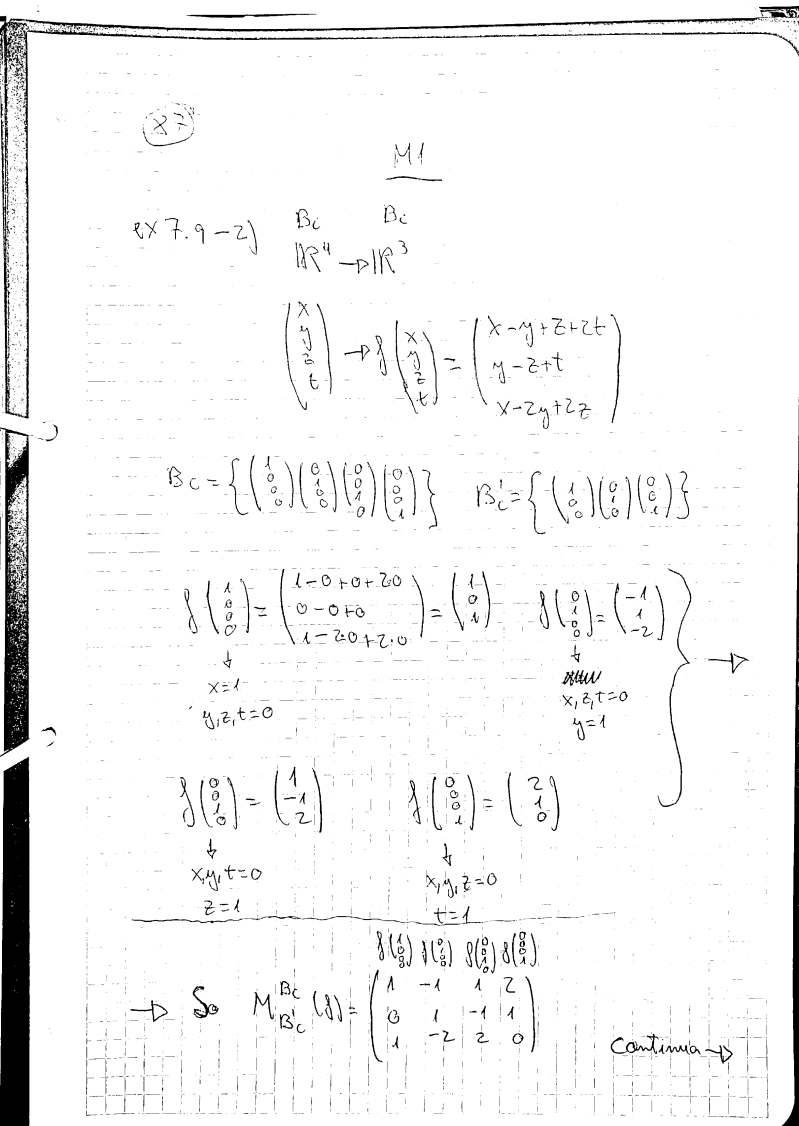 87
M1
Bc Bc
ex 7.9-2) ℝ⁴ → ℝ³
(x y z t) → f(x y z t) = (x-y+z+2t, y-z+t, x-2y+2z)
Bc = {(1 0 0 0)(0 1 0 0)(0 0 1 0)(0 0 0 1)} B'c = {(1 0 0)(0 1 0)(0 0 1)}
f(1 0 0 0) = (1-0+0+2·0, 0-0+0, 1-2·0+2·0) = (1 0 1) f(0 1 0 0) = (-1 1 -2) } →
↓ ↓
x=1 x,z,t=0
y,z,t=0 y=1
f(0 0 1 0) = (1 -1 2) f(0 0 0 1) = (2 1 0)
↓ ↓
x,y,t=0 x,y,z=0
z=1 t=1
f(1 0 0 0) f(0 1 0 0) f(0 0 1 0) f(0 0 0 1)
→ So M^Bc_B'c (f) = (1 -1 1 2
0 1 -1 1
1 -2 2 0)
Continua →